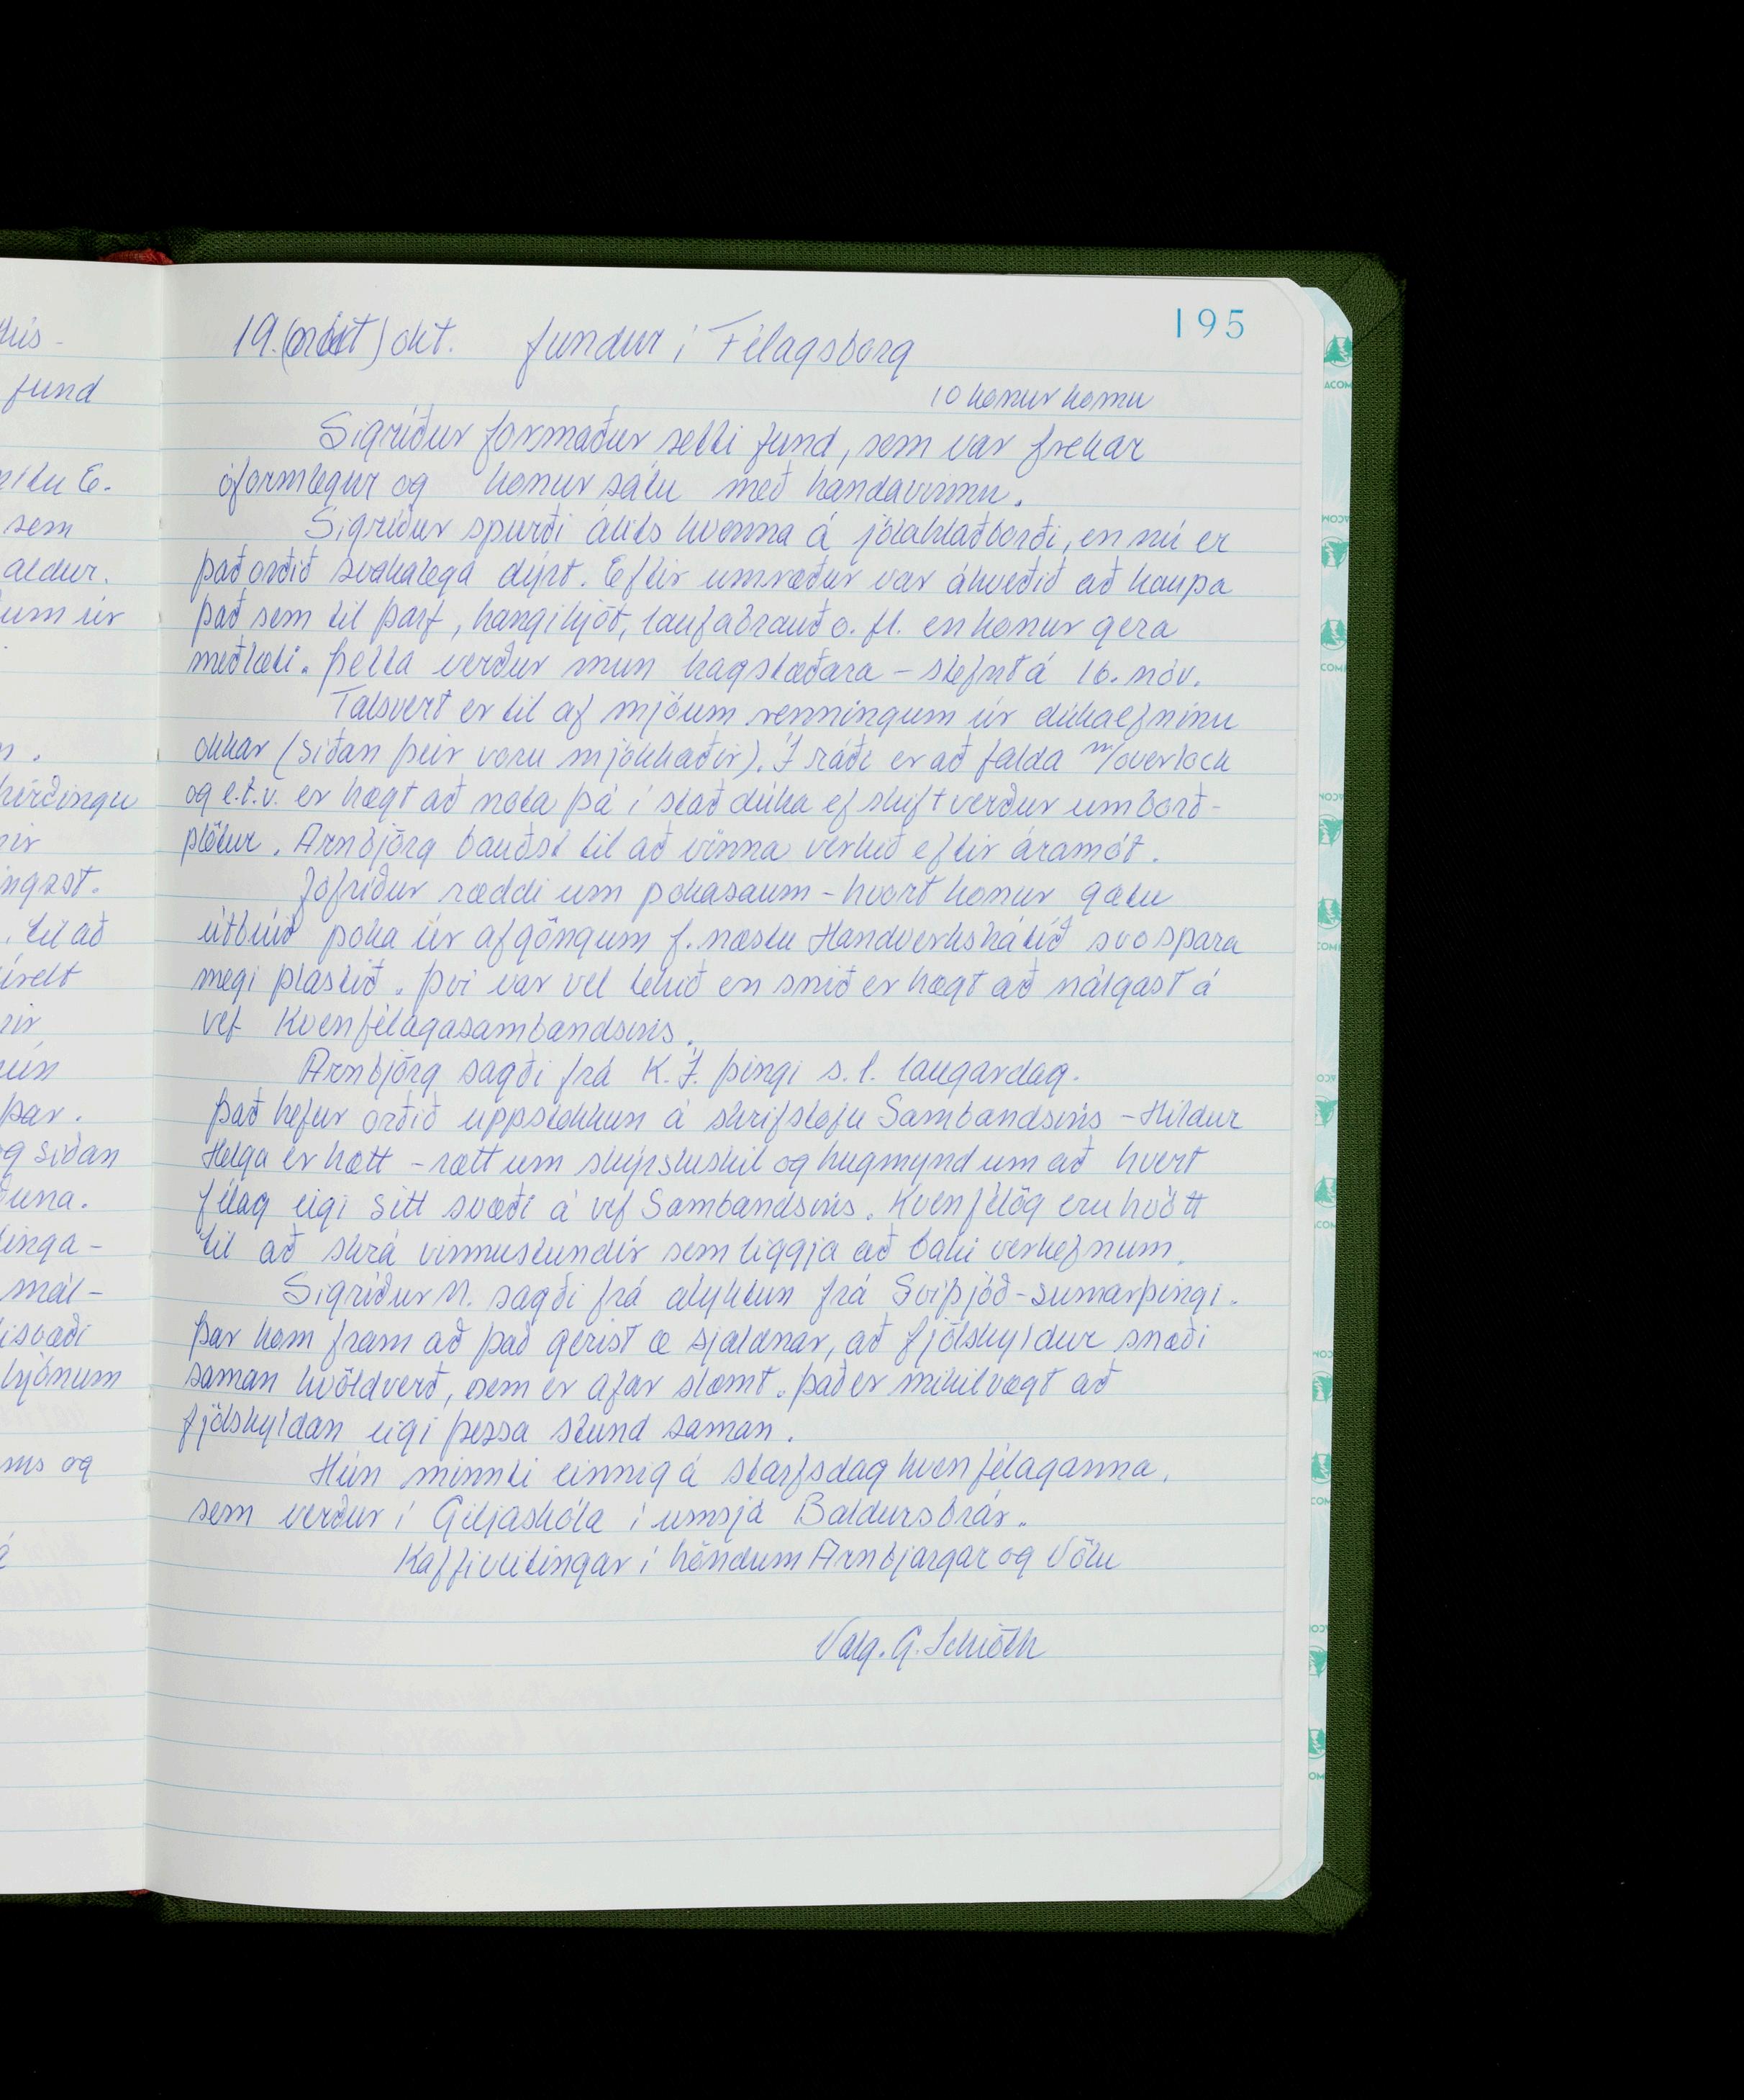 195
19. okt. fundur í Félagsborg
10 konur komu
Sigríður formaður setti fund, sem var frekar
óformlegur og konur sátu með handavinnu.
Sigríður spurði álits kvenna á jólahlaðborði, en nú er
það orðið svakalega dýrt. Eftir umræður var ákveðið að kaupa
það sem til þarf, hangikjöt, laufabrauð o.fl. en konur gera
meðlæti. Þetta verður mun hagstæðara - stefnt á 16. nóv.
Talsvert er til af mjóum renningum úr dúkaefninu
okkar (síðan þeir voru mjókkaðir). Í ráði er að falda m/overlock
og e.t.v. er hægt að nota þá í stað dúka ef skift verður um borð-
plötur. Arnbjörg bauðst til að vinna verkið eftir áramót.
Jófríður ræddi um pokasaum - hvort konur gætu
útbúið poka úr afgöngum f. næstu Handverkshátíð svo spara
megi plastið. Því var vel tekið en snið er hægt að nálgast á
vef Kvenfélagasambandsins.
Arnbjörg sagði frá K.Í. þingi s.l. laugardag.
Það hefur orðið uppstokkun á skrifstofu Sambandsins - Hildur
Helga er hætt - rætt um skýrsluskil og hugmynd um að hvert
félag eigi sitt svæði á vef Sambandsins. Kvenfélög eru hvött
til að skrá vinnustundir sem liggja að baki verkefnum.
Sigríður M. sagði frá alyktun frá Svíþjóð-sumarþingi.
Þar kom fram að það gerist æ sjaldnar, að fjölskyldur snæði
saman kvöldverð, sem er afar slæmt. Það er mikilvægt að
fjölskyldan eigi þessa stund saman.
Hún minnti einnig á starfsdag kvenfélaganna,
sem verður í Giljaskóla í umsjá Baldursbrár.
Kaffiveitingar í höndum Arnbjargar og Völu
Valg. G. Schiöth
his-
fund
E.
sem
aldur.
um úr
hirðingu
ingast.
til að
þar.
og síðan
inga-
mál-
isvæði
hjónum
og